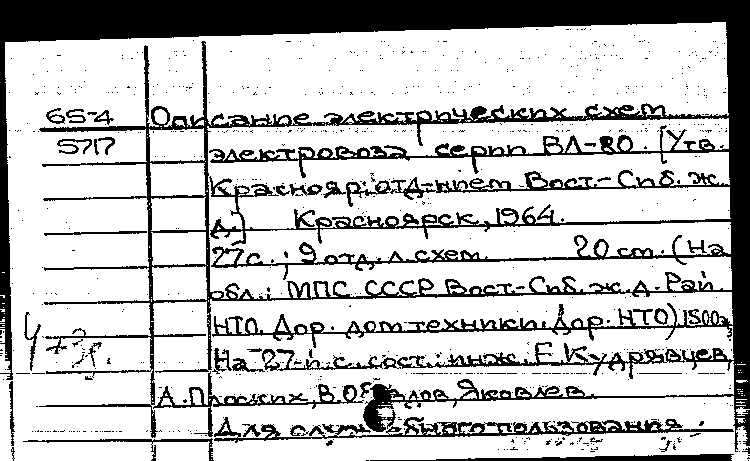 65-4 Описание электрических схем
5717 электровоза серии ВЛ-80. [Утв.
Краснояр. отд-нием Вост.-Сиб. ж.
д.]. Красноярск, 1964.
27 с.; 9 отд. л. схем. 20 см. (На
обл.: МПС СССР Вост.-Сиб. ж. д. Рай.
НТО. Дор. дом техники. Дор. НТО) 1500э
На 27-й с. сост.: инж. Е. Кудрявцев,
А. Плоских, В. Яковлев.
Для пользования.